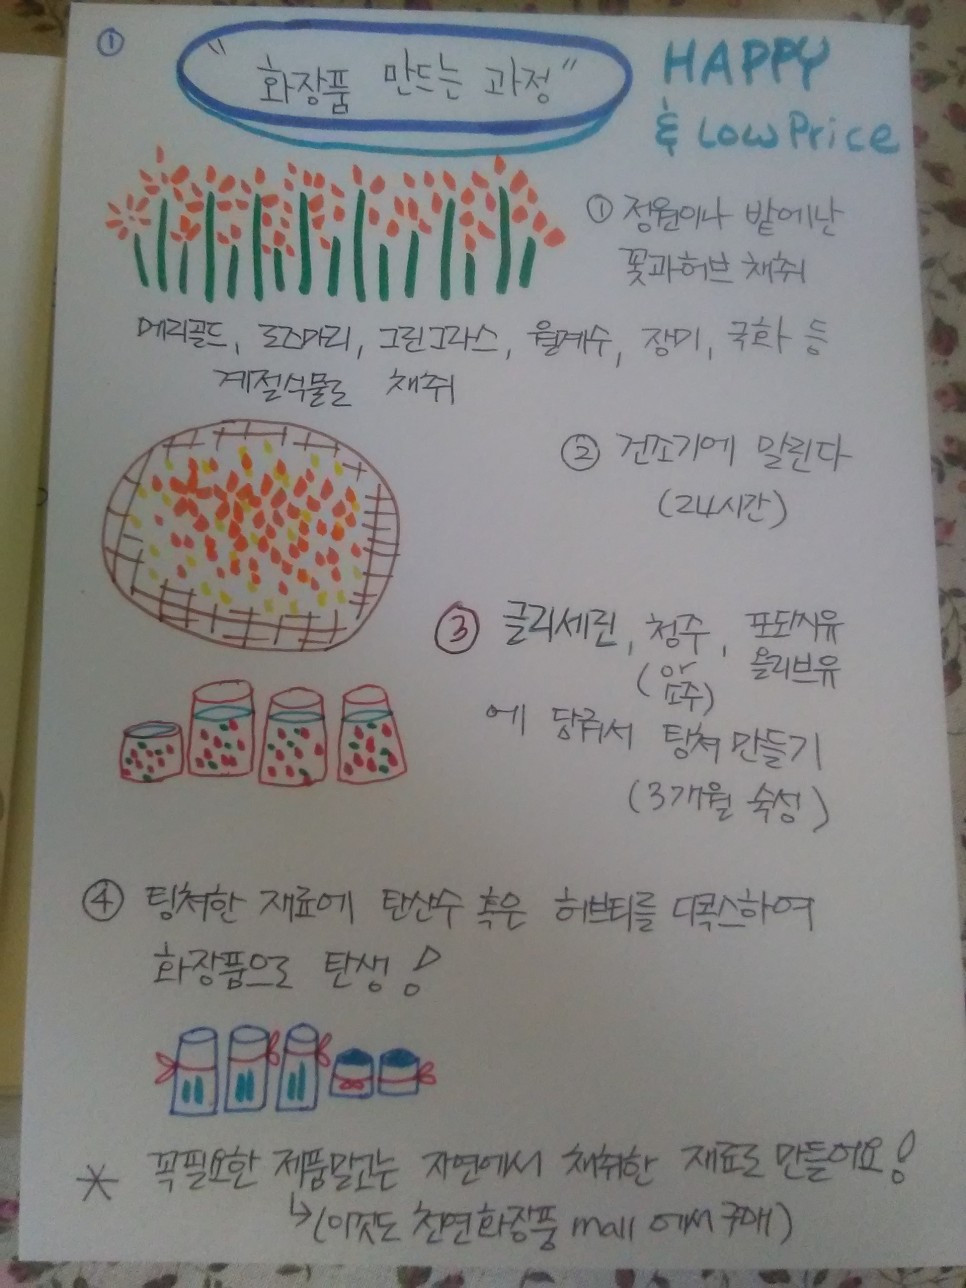 ①
"화장품 만드는 과정"
HAPPY
& Low Price
① 정원이나 밭에난
꽃과허브 채취
메리골드, 로즈마리, 그린그라스, 월계수, 장미, 국화 등
계절식물로 채취
② 건조기에 말린다
(24시간)
③ 글리세린, 청주, 포도씨유
(or 소주) 올리브유
에 담궈서 팅쳐 만들기
(3개월 숙성)
④ 팅쳐한 재료에 탄산수 혹은 허브티를 디콕스하여
화장품으로 탄생!
* 꼭필요한 제품말고는 자연에서 채취한 재료로 만들어요!
↳(이것도 천연화장품 mall 에서 구매)